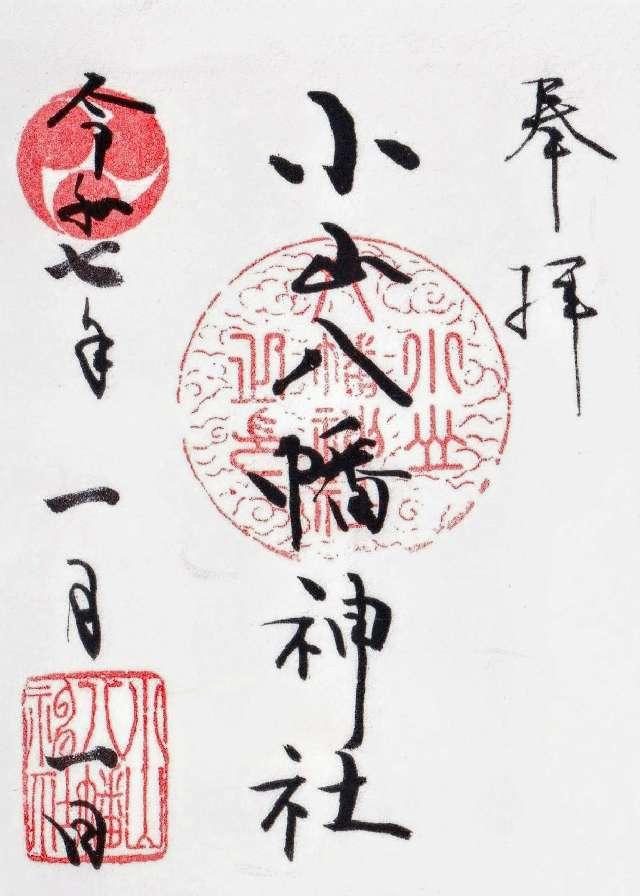 奉拝
小山八幡神社
令和七年 一月 一日